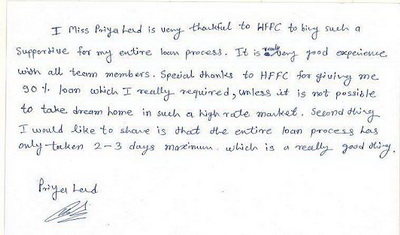 I Miss Priya Lerd is very thankful to HFFC to big such a
supportive for my entire loan process. It is really very good experience
with all team members. Special thanks to HFFC for giving me
90% loan which I really required, unless it is not possible
to take dream home in such a high rate market. Second thing
I would like to share is that the entire loan process has
only taken 2-3 days maximum. which is a really good thing.
Priya Lerd